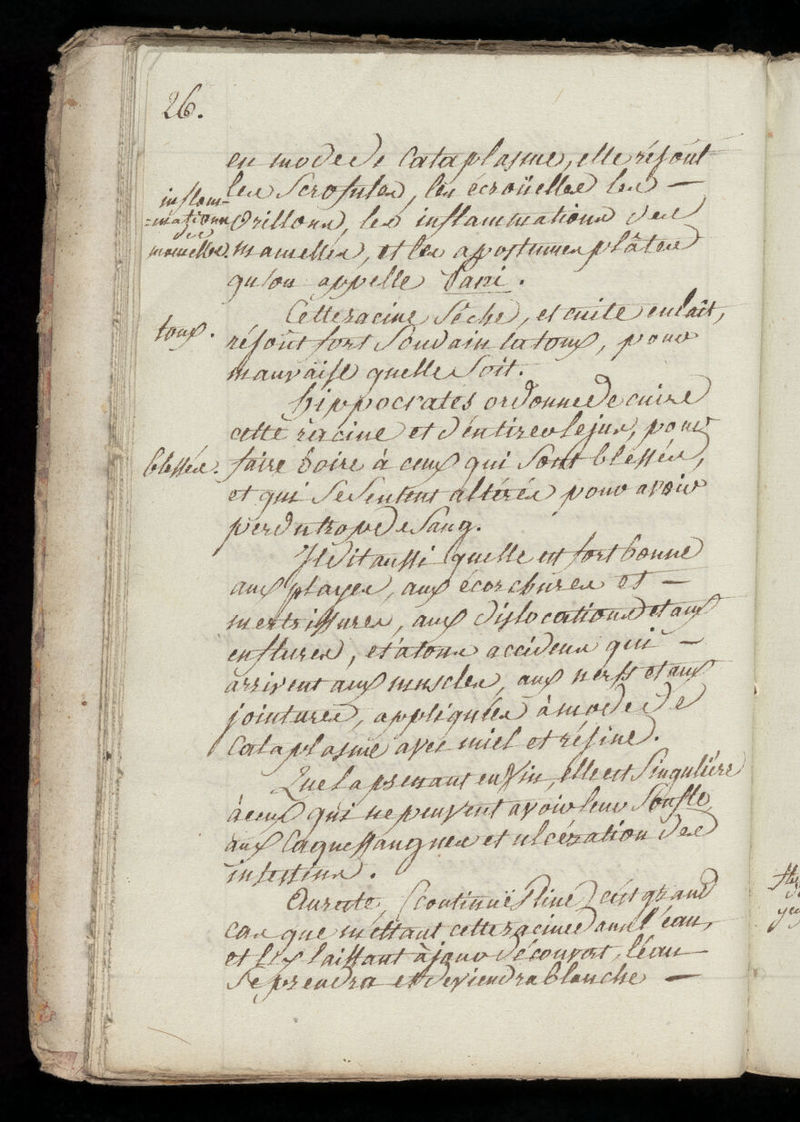 26.
en mode de Cataplasme, elle résout
les Scrofules, les écroüelles les —
inflam-
=mations
des
mamelles.
Orillons, les inflammations des
mamelles, et les apostumes plâtes
qu'on appelle Pani.
Cette racine Sêche, et cuite en lait,
toux.
résout fort Soudain la toux, pour
mauvaise quelle Soit.
hippocrates ordonne de cuire
cette racine et d'en tirer le jus, pour
blessés.
faire boire à ceux qui Sont bléssés,
et qui Se Sentent altérés pour avoir
perdu trop de Sang.
Il dit aussi quelle est fort bonne
aux playes, aux écorchures et —
meurtrissures, aux dislocations et aux
enflures, et à tous accidens qui —
arrivent aux muscles, aux nerfs et aux
jointures, appliquées à mode de
Cataplasme avec miel et résine.
Que la prenant en Vin, elle est Singulière
à ceux qui ne peuvent avoir leur Soufle
aux Caquessangues et ulcération des
intestins.
Au reste (continuë Pline) c'est grand
cas que méttant cette racine dans l'eau,
et l'y laissant à jour découvert, l'éau
Se prendra et deviendra blanche —